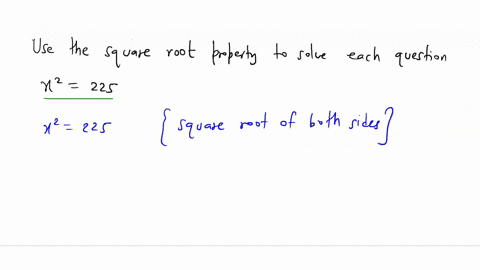 Use the square root property to solve each question
x² = 225
x² = 225 {square root of both sides}